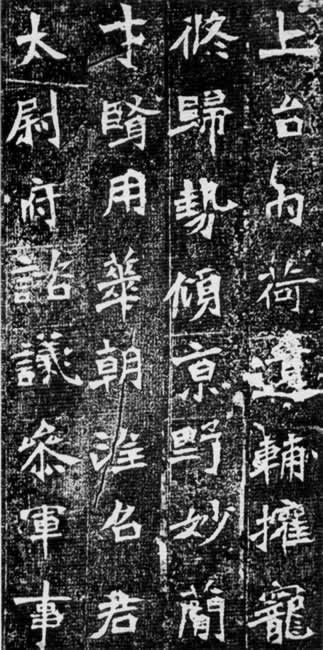 上台內荷遺輔權寵
修歸勢傾京野妙簡
才賢用華朝名君
太尉府諮議參軍事